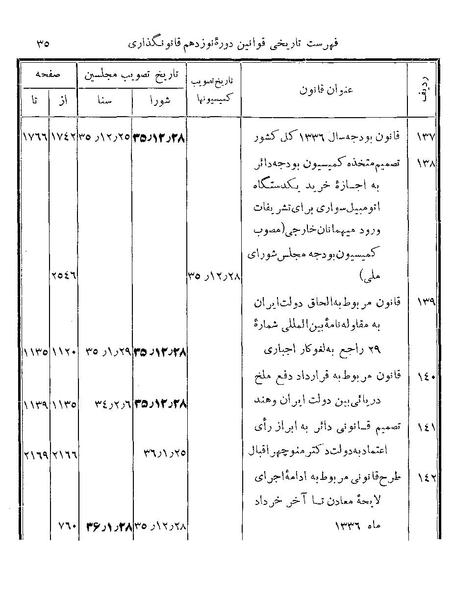 فهرست تاریخی قوانین دورهٔ نوزدهم قانونگذاری ۳۵
ردیف عنوان قانون تاریخ تصویب کمیسیونها تاریخ تصویب مجلسین صفحه
شورا سنا از تا
۱۳۷ قانون بودجه سال ۱۳۳۶ کل کشور ۳۵٫۱۲٫۲۸ ۳۵٫۱۲٫۲۵ ۱۷۴۲ ۱۷۶۶
۱۳۸ تصمیم متخذه کمیسیون بودجه دائر
به اجازهٔ خرید یکدستگاه
اتومبیل سواری برای تشریفات
ورود میهمانان خارجی (مصوب
کمیسیون بودجه مجلس شورای
ملی) ۳۵٫۱۲٫۲۸ ۲۵۴۶
۱۳۹ قانون مربوط به الحاق دولت ایران
به مقاوله نامهٔ بین المللی شمارهٔ
۲۹ راجع به لغو کار اجباری ۳۵٫۱۲٫۲۸ ۳۵٫۱٫۲۹ ۱۱۲۰ ۱۱۳۵
۱۴۰ قانون مربوط به قرارداد دفع ملخ
دریائی بین دولت ایران وهند ۳۵٫۱۲٫۲۸ ۳۴٫۲٫۶ ۱۱۳۵ ۱۱۳۹
۱۴۱ تصمیم قانونی دائر به ابراز رأی
اعتماد به دولت دکتر منوچهر اقبال ۳۶٫۱٫۲۵ ۲۱۶۶ ۲۱۶۹
۱۴۲ طرح قانونی مربوط به ادامهٔ اجرای
لایحهٔ معادن تا آخر خرداد
ماه ۱۳۳۶ ۳۵٫۱۲٫۲۸ ۳۶٫۱٫۲۸ ۷۶۰